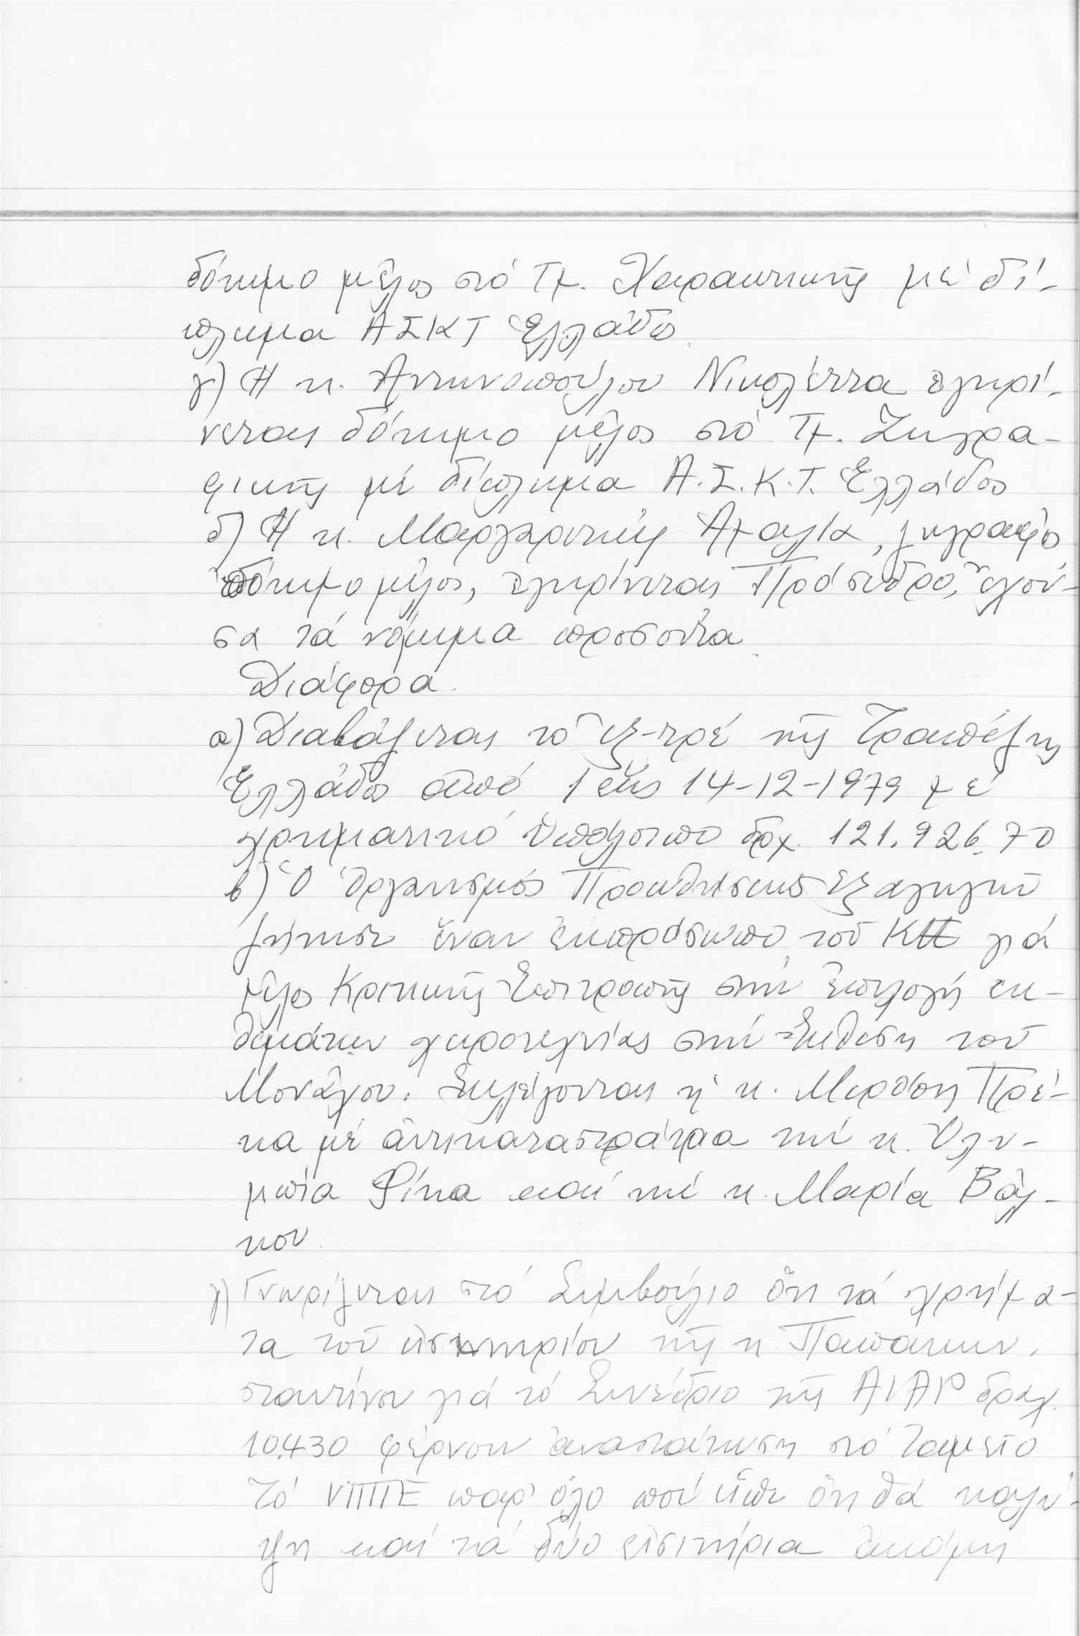 δόκιμο μέλος στό Τμ. Χαρακτικῆς μέ δί-
πλωμα ΑΣΚΤ Ἑλλάδος.
γ) Ἡ κ. Αντωνοπούλου Νικολέττα ἐγκρί-
νεται δόκιμο μέλος στό Τμ. Ζωγρα-
φικῆς μέ δίπλωμα Α.Σ.Κ.Τ. Ἑλλάδος
δ) Ἡ κ. Μαργαριτώφ Αμαλία, ζωγράφο
δόκιμο μέλος, ἐγκρίνεται Πρόσεδρο, ἔχου-
σα τά νόμιμα προσόντα.
Διάφορα.
α) Διαβάζεται τό ἐξ-τρέ τῆς Τραπέζης
Ἑλλάδος ἀπό 1 ἕως 14-12-1979 μέ
χρηματικό ὑπόλοιπο δρχ. 121.926,70
β) Ὁ Ὀργανισμός Προωθήσεως Ἐξαγωγῶν
ζήτησε ἕναν ἐκπρόσωπο τοῦ για
μέλος Κριτικῆς Ἐπιτροπῆς στήν ἐπιλογή ἐκ-
θεμάτων χειροτεχνίας στήν Ἔκθεση τοῦ
Μονάχου. Ἐκλέγονται ἡ κ. Μερόπη Πρέ-
κα μέ ἀντικαταστάτρια τήν κ. Ὀλυ-
μπία Φίκα καί τήν κ. Μαρία Βόλ-
κου.
γ) Γνωρίζεται στό Συμβούλιο ὅτι τά χρήμα-
τα τοῦ εἰσιτηρίου τῆς κ. Παπακων-
σταντίνου γιά τό Συνέδριο τῆς AIAP δραχ.
10.430 φέρνουν ἀναστάτωση στό Ταμεῖο
Τό ΥΠΠΕ παρ' ὅλο πού εἶπε ὅτι θά καλύ-
ψη καί τά δύο εἰσιτήρια ἀκόμη